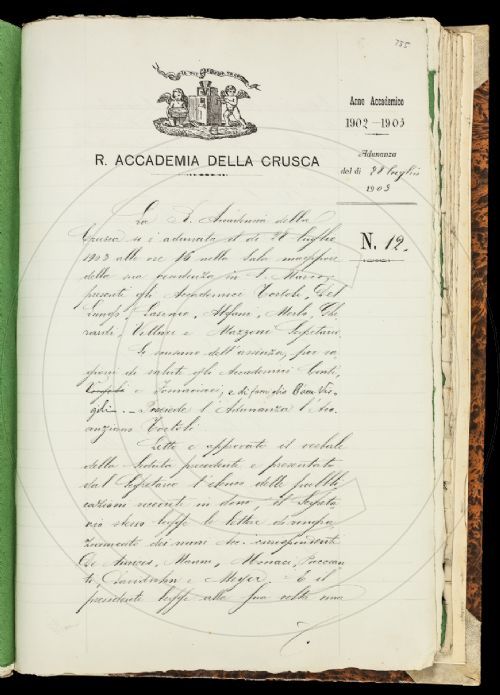 735
IL PIÙ BEL FIOR NE COGLIE
R. ACCADEMIA DELLA CRUSCA
Anno Accademico
1902-1903
Adunanza
del dì 28 luglio
1903
N. 12.
La R. Accademia della
Crusca si è adunata il dì 28 luglio
1903 alle ore 16 nella sala maggiore
della sua residenza in S. Marco;
presenti gli Accademici Tortoli, Del
Lungo, Alfani, Merlo, Ghe
rardi, Villari e Mazzoni Segretario.
Si scusano dell'assenza, per ra
gioni di salute gli Accademici Conti,
e Tommasini, e di famiglia
Presiede l'Adunanza l'Acc.
anziano Tortoli.
Letto e approvato il verbale
della seduta precedente e presentato
dal Segretario l'elenco delle pubbli
cazioni ricevute in dono, il Segreta
rio stesso legge le lettere di ringra
ziamento dei nuovi Acc. corrispondenti
De Amicis, Monaci,
e Meyer. E il
presidente legge alla sua volta una